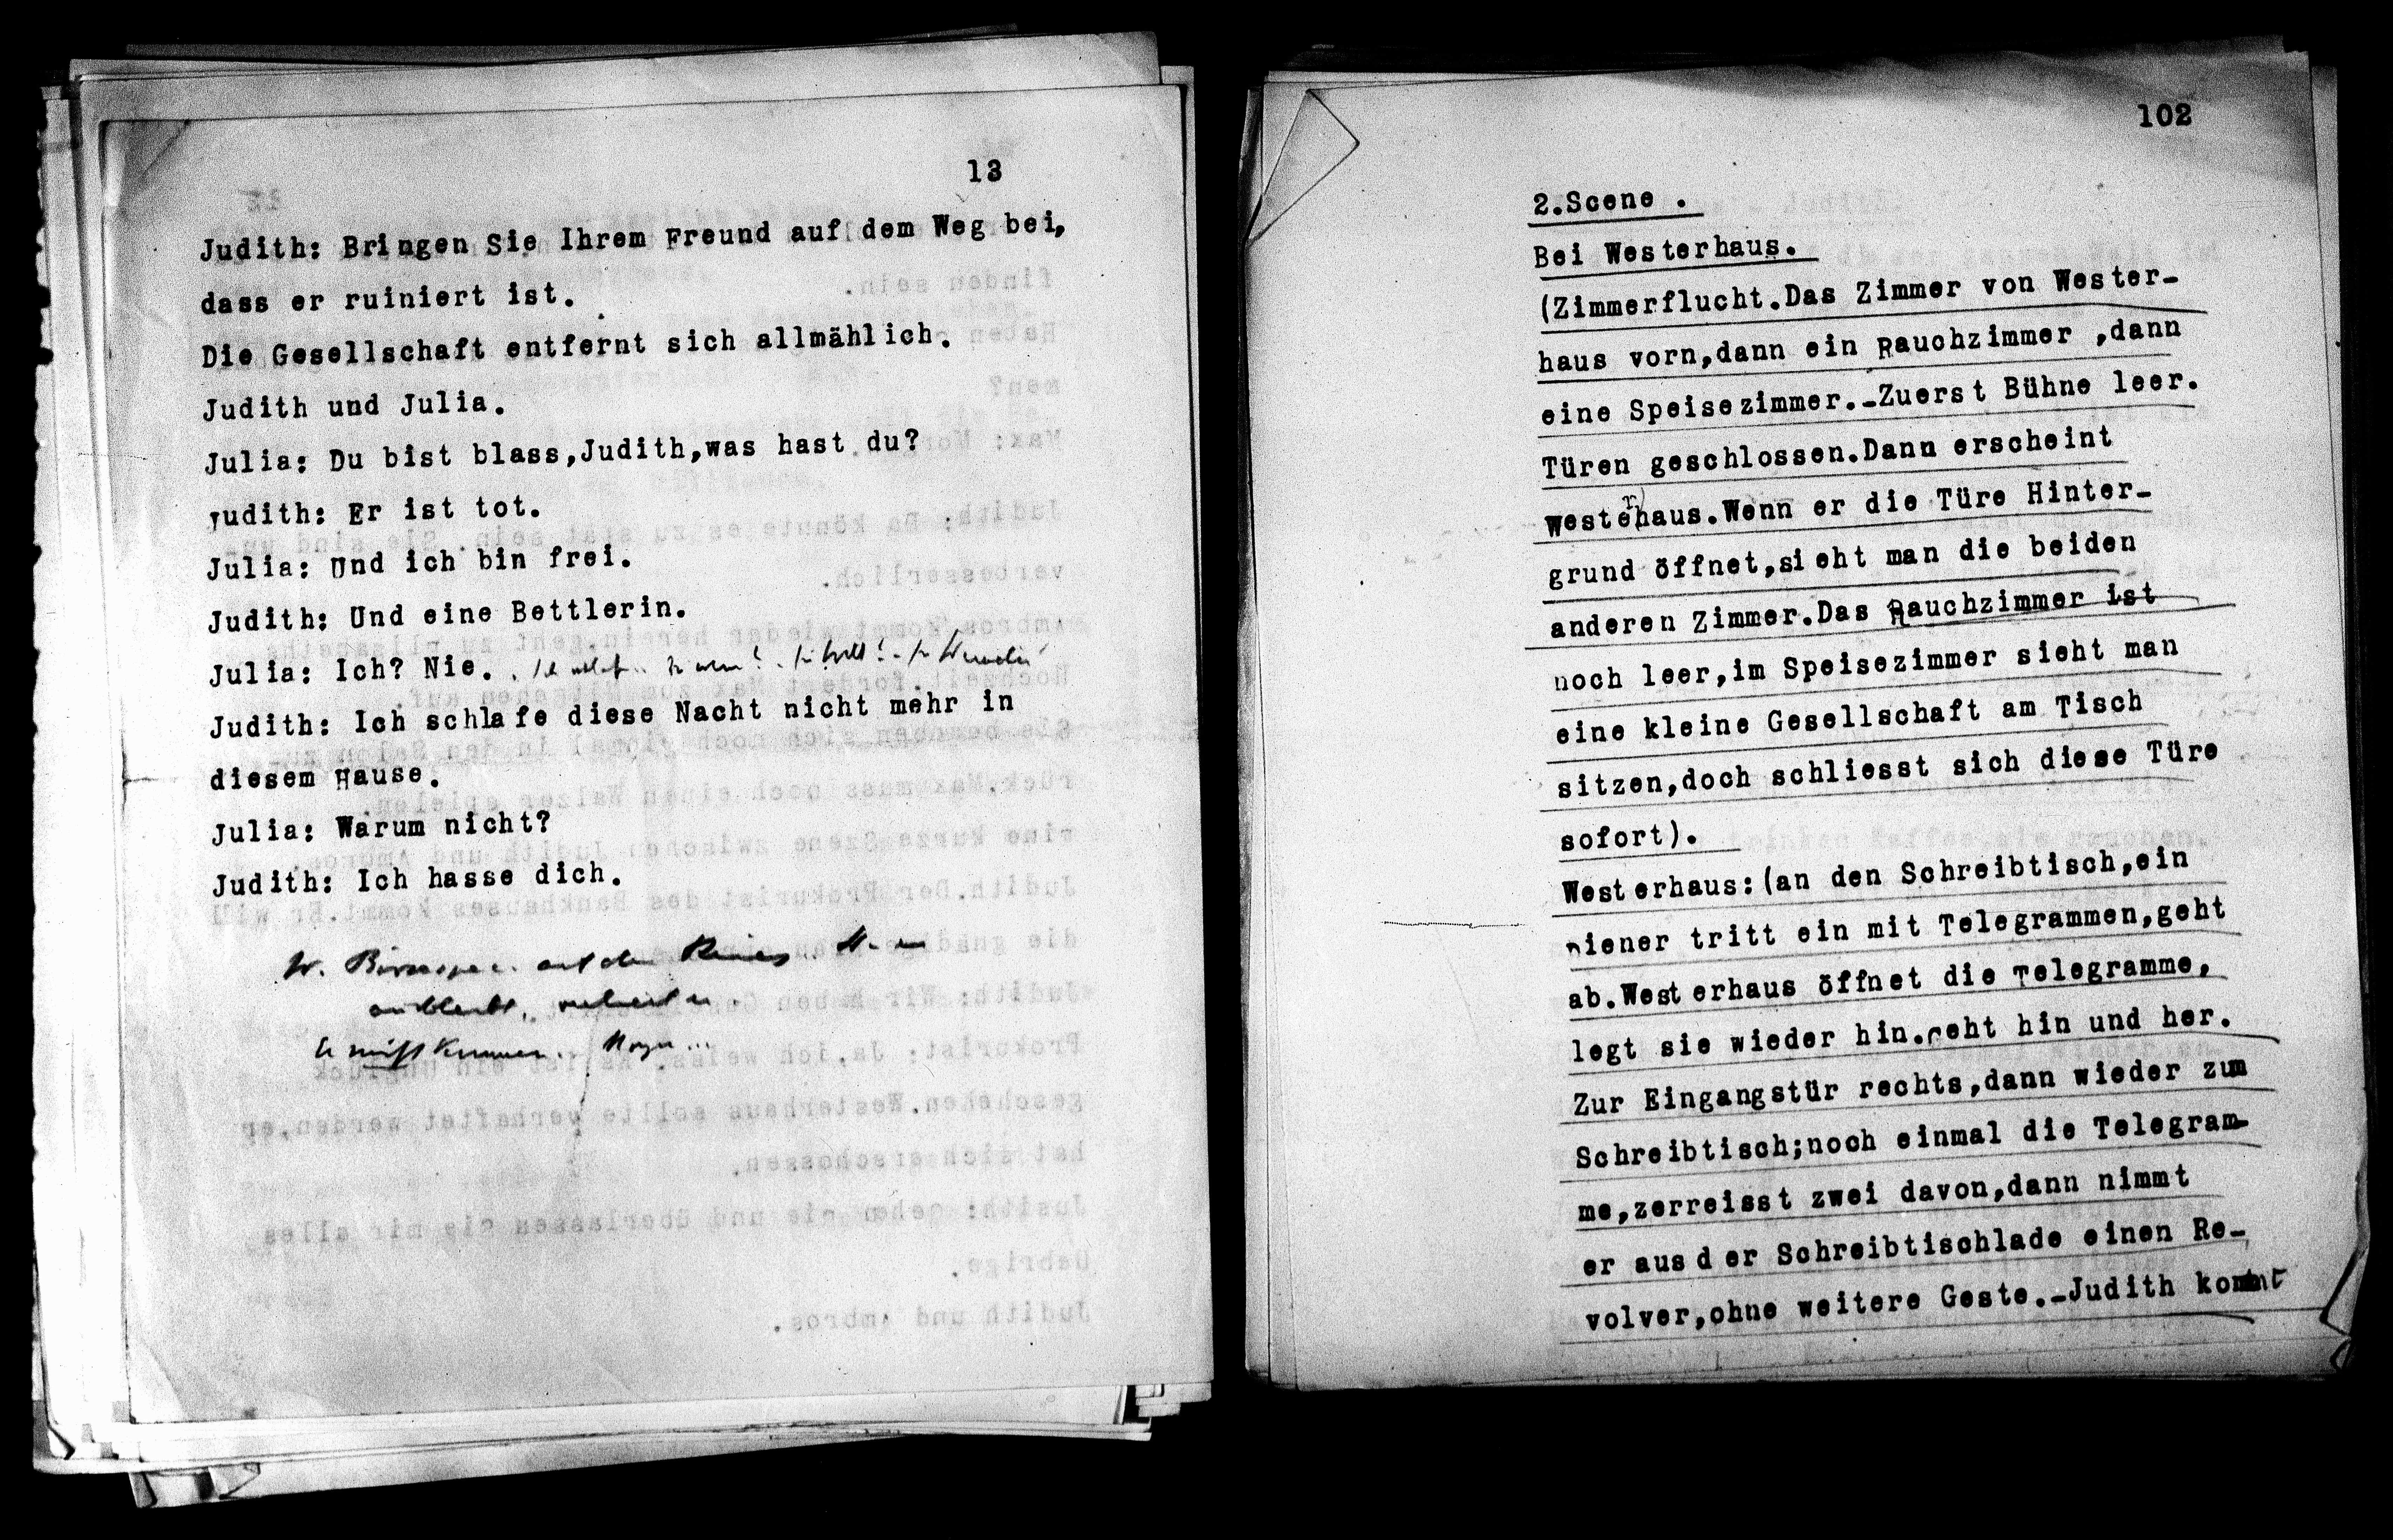 13
Judith: Bringen Sie Ihrem Freund auf dem Weg bei,
dass er ruiniert ist.
Die Gesellschaft entfernt sich allmählich.
Judith und Julia.
Julia: Du bist blass,Judith,was hast du?
Judith: Er ist tot.
Julia: Und ich bin frei.
Judith: Und eine Bettlerin.
Julia: Ich? Nie.
Judith: Ich schlafe diese Nacht nicht mehr in
diesem Hause.
Julia: Warum nicht?
Judith: Ich hasse dich.
102
2.Scene .
Bei Westerhaus.
(Zimmerflucht.Das Zimmer von Wester-
haus vorn,dann ein Rauchzimmer ,dann
eine Speisezimmer.-Zuerst Bühne leer.
Türen geschlossen.Dann erscheint
Westerhaus.Wenn er die Türe Hinter-
grund öffnet,sieht man die beiden
anderen Zimmer.Das Rauchzimmer ist
noch leer,im Speisezimmer sieht man
eine kleine Gesellschaft am Tisch
sitzen,doch schliesst sich diese Türe
sofort).
Westerhaus:(an den Schreibtisch,ein
Diener tritt ein mit Telegrammen,geht
ab.Westerhaus öffnet die Telegramme,
legt sie wieder hin.Geht hin und her.
Zur Eingangstür rechts,dann wieder zum
Schreibtisch;noch einmal die Telegram-
me,zerreisst zwei davon,dann nimmt
er aus der Schreibtischlade einen Re-
volver,ohne weitere Geste.-Judith kommt